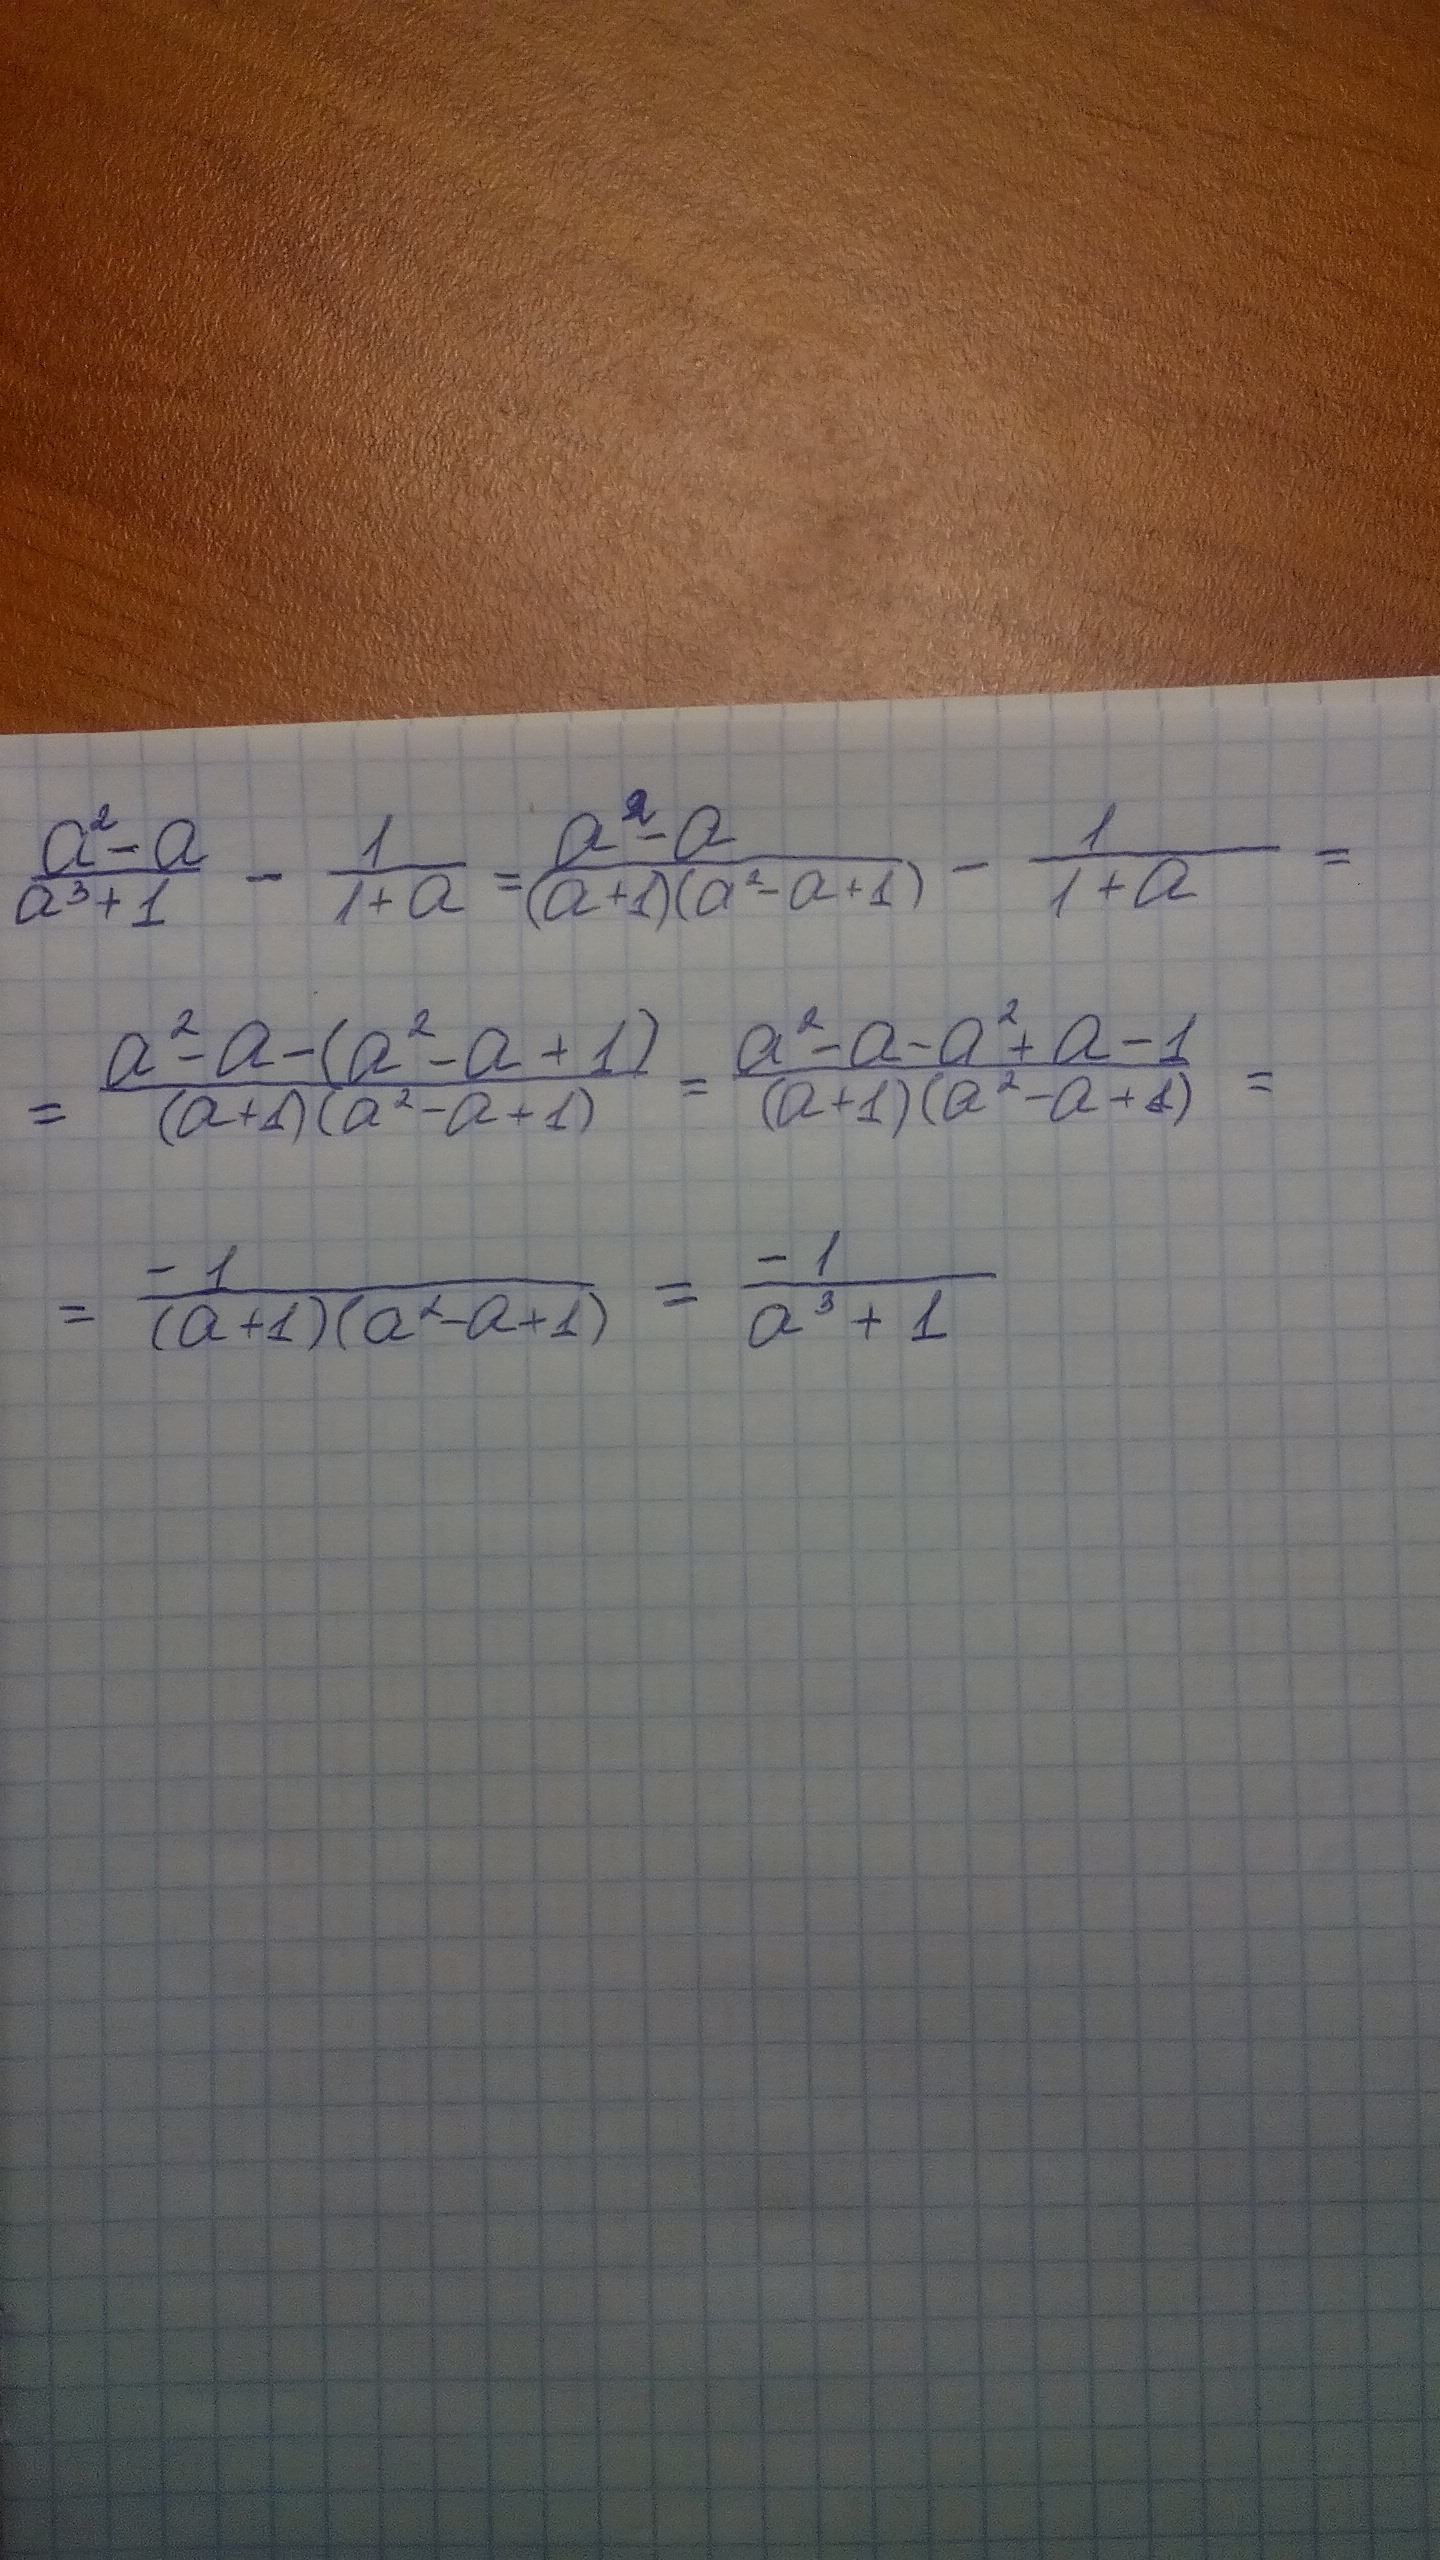 (a²-a)/(a³+1) - 1/(1+a) = (a²-a)/((a+1)(a²-a+1)) - 1/(1+a) =
= (a²-a-(a²-a+1))/((a+1)(a²-a+1)) = (a²-a-a²+a-1)/((a+1)(a²-a+1)) =
= -1/((a+1)(a²-a+1)) = -1/(a³+1)